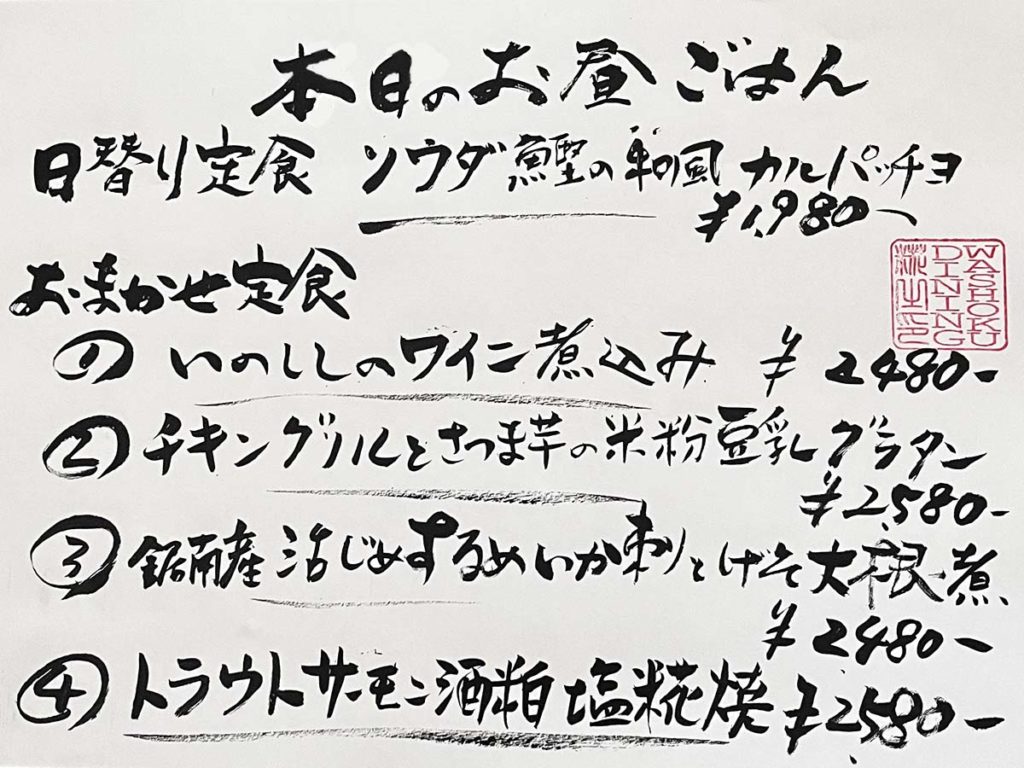 本日のお昼ごはん
日替り定食 ソウダ鰹の和風カルパッチョ
¥1,980-
おまかせ定食
① いのししのワイン煮込み ¥2480-
② チキングリルとさつま芋の米粉豆乳グラタン
¥2,580-
③ 鋸南産 活じめするめいか刺とげそ大根煮
¥2480-
④ トラウトサーモン酒粕塩糀焼 ¥2,580-
WASHOKU
DINING